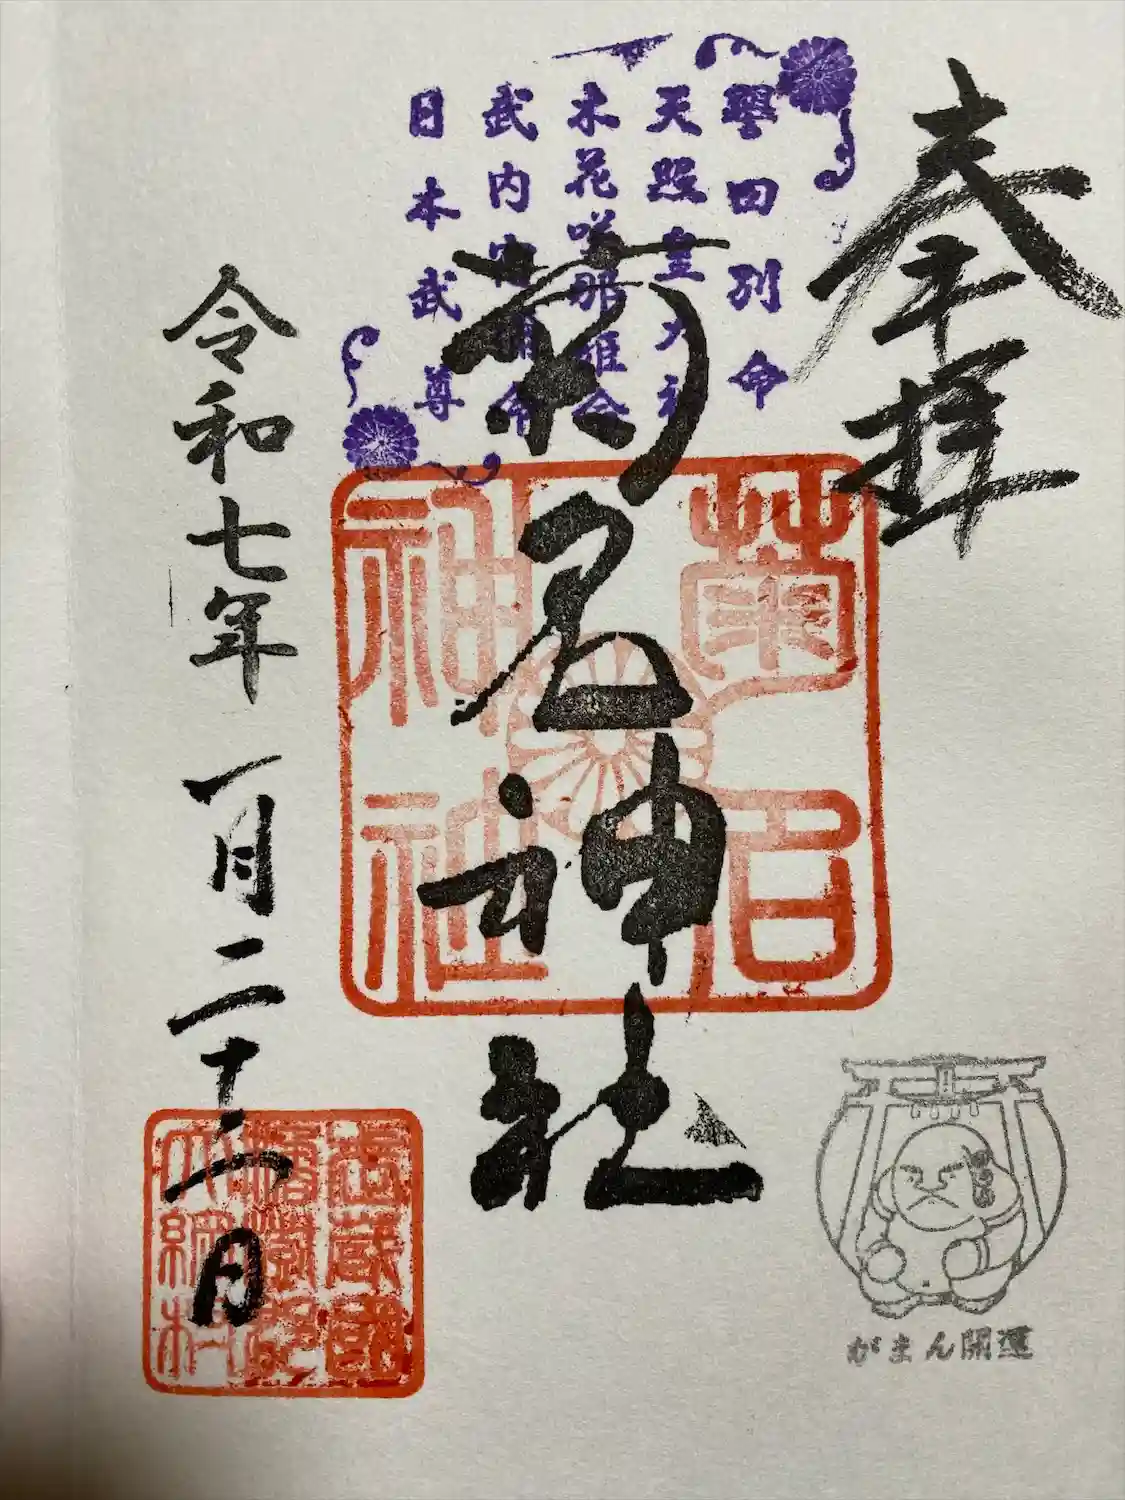 奉拝
譽田別命
天照皇大神
木花咲耶姫命
武内宿禰命
日本武尊
菊名神社
菊名
神社
令和七年一月二十二日
武蔵國
橘樹郡
大綱村
がまん開運